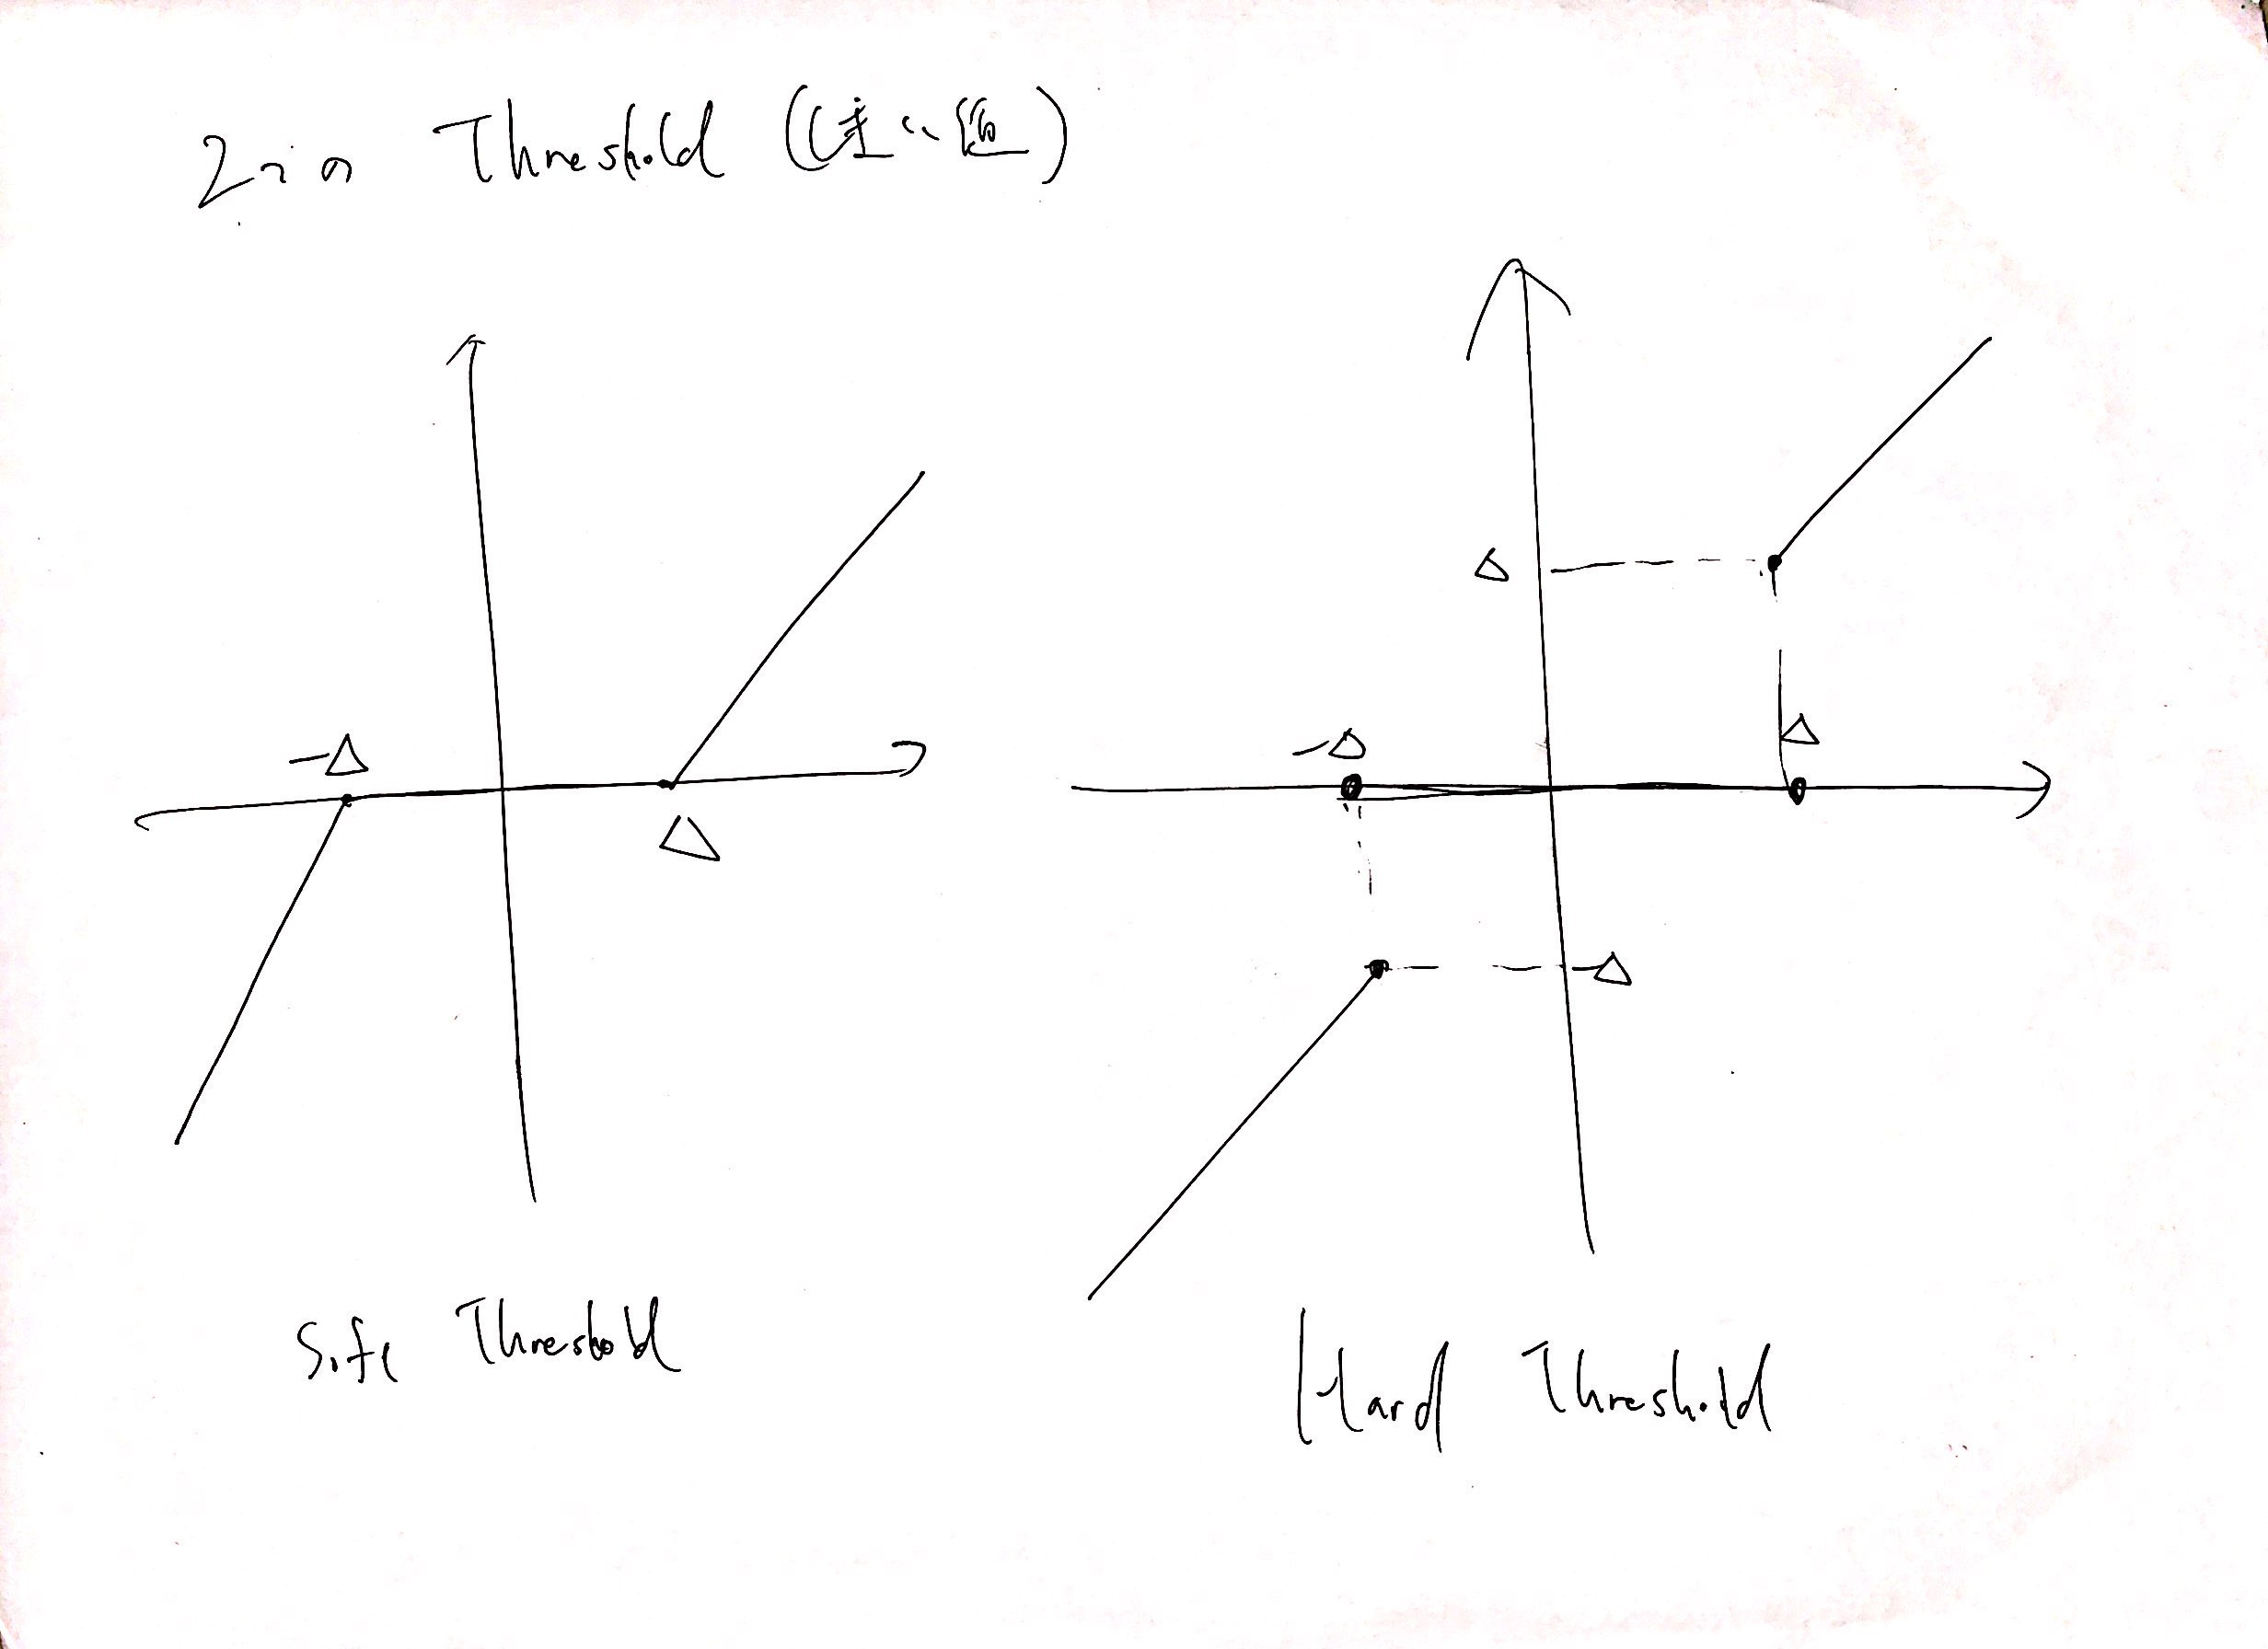 2つの Threshold (しきい値)
-Δ
Δ
Soft Threshold
Δ
-Δ
Δ
-Δ
Hard Threshold